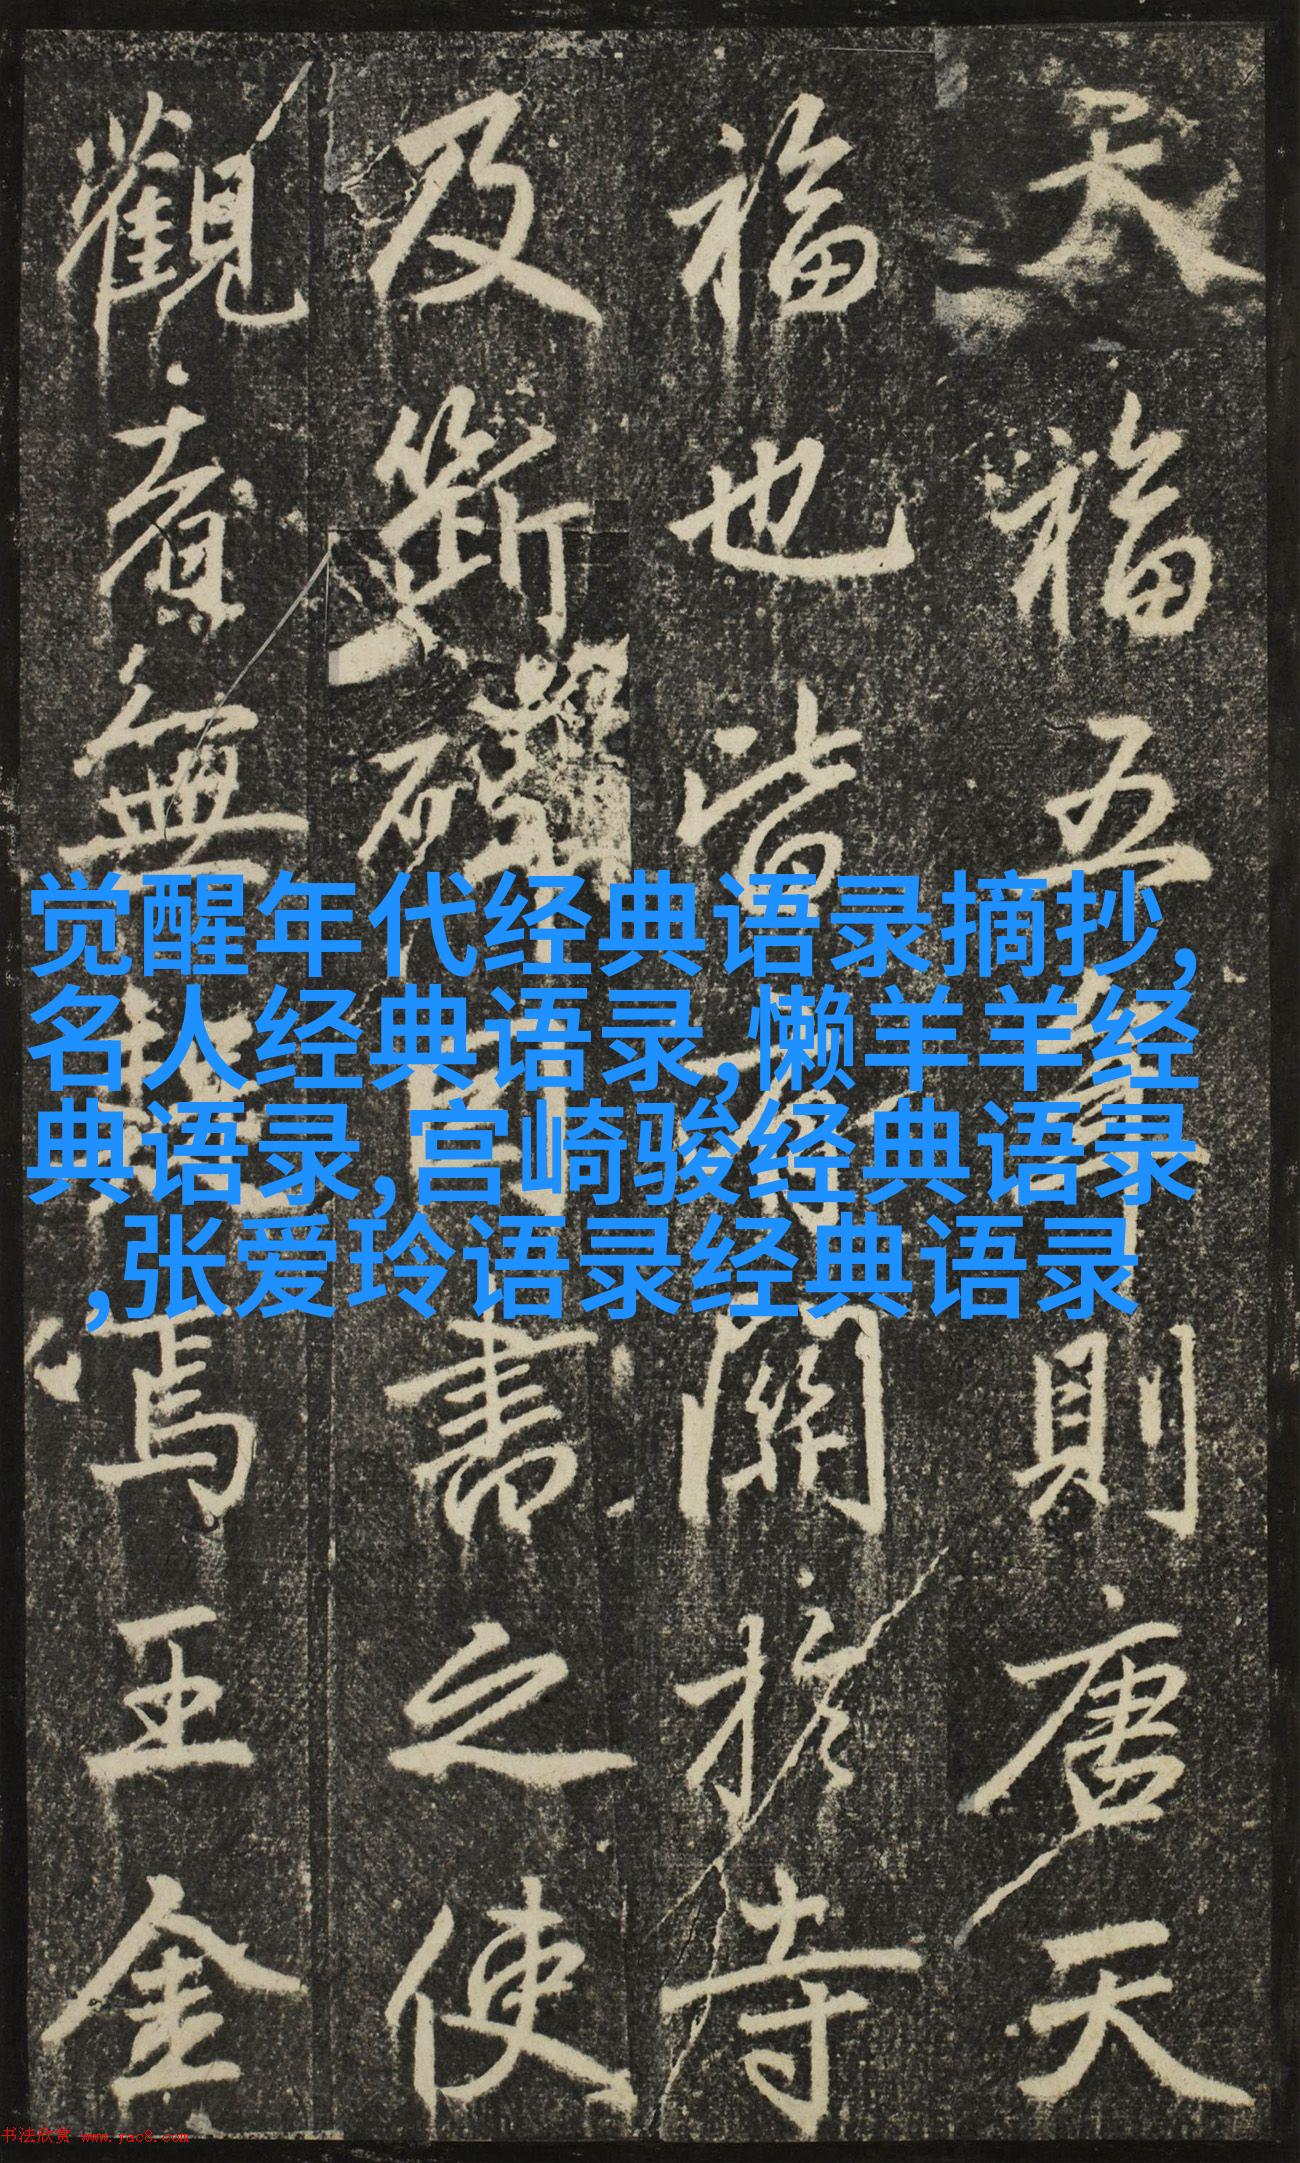 天福五年則唐天
福也皆有關於寺
及斷碑 書之使
觀者無 焉王金
觉醒年代经典语录摘抄,
名人经典语录,懒羊羊经
典语录,宫崎骏经典语录
,张爱玲语录经典语录
书法欣赏 www.yac8.com